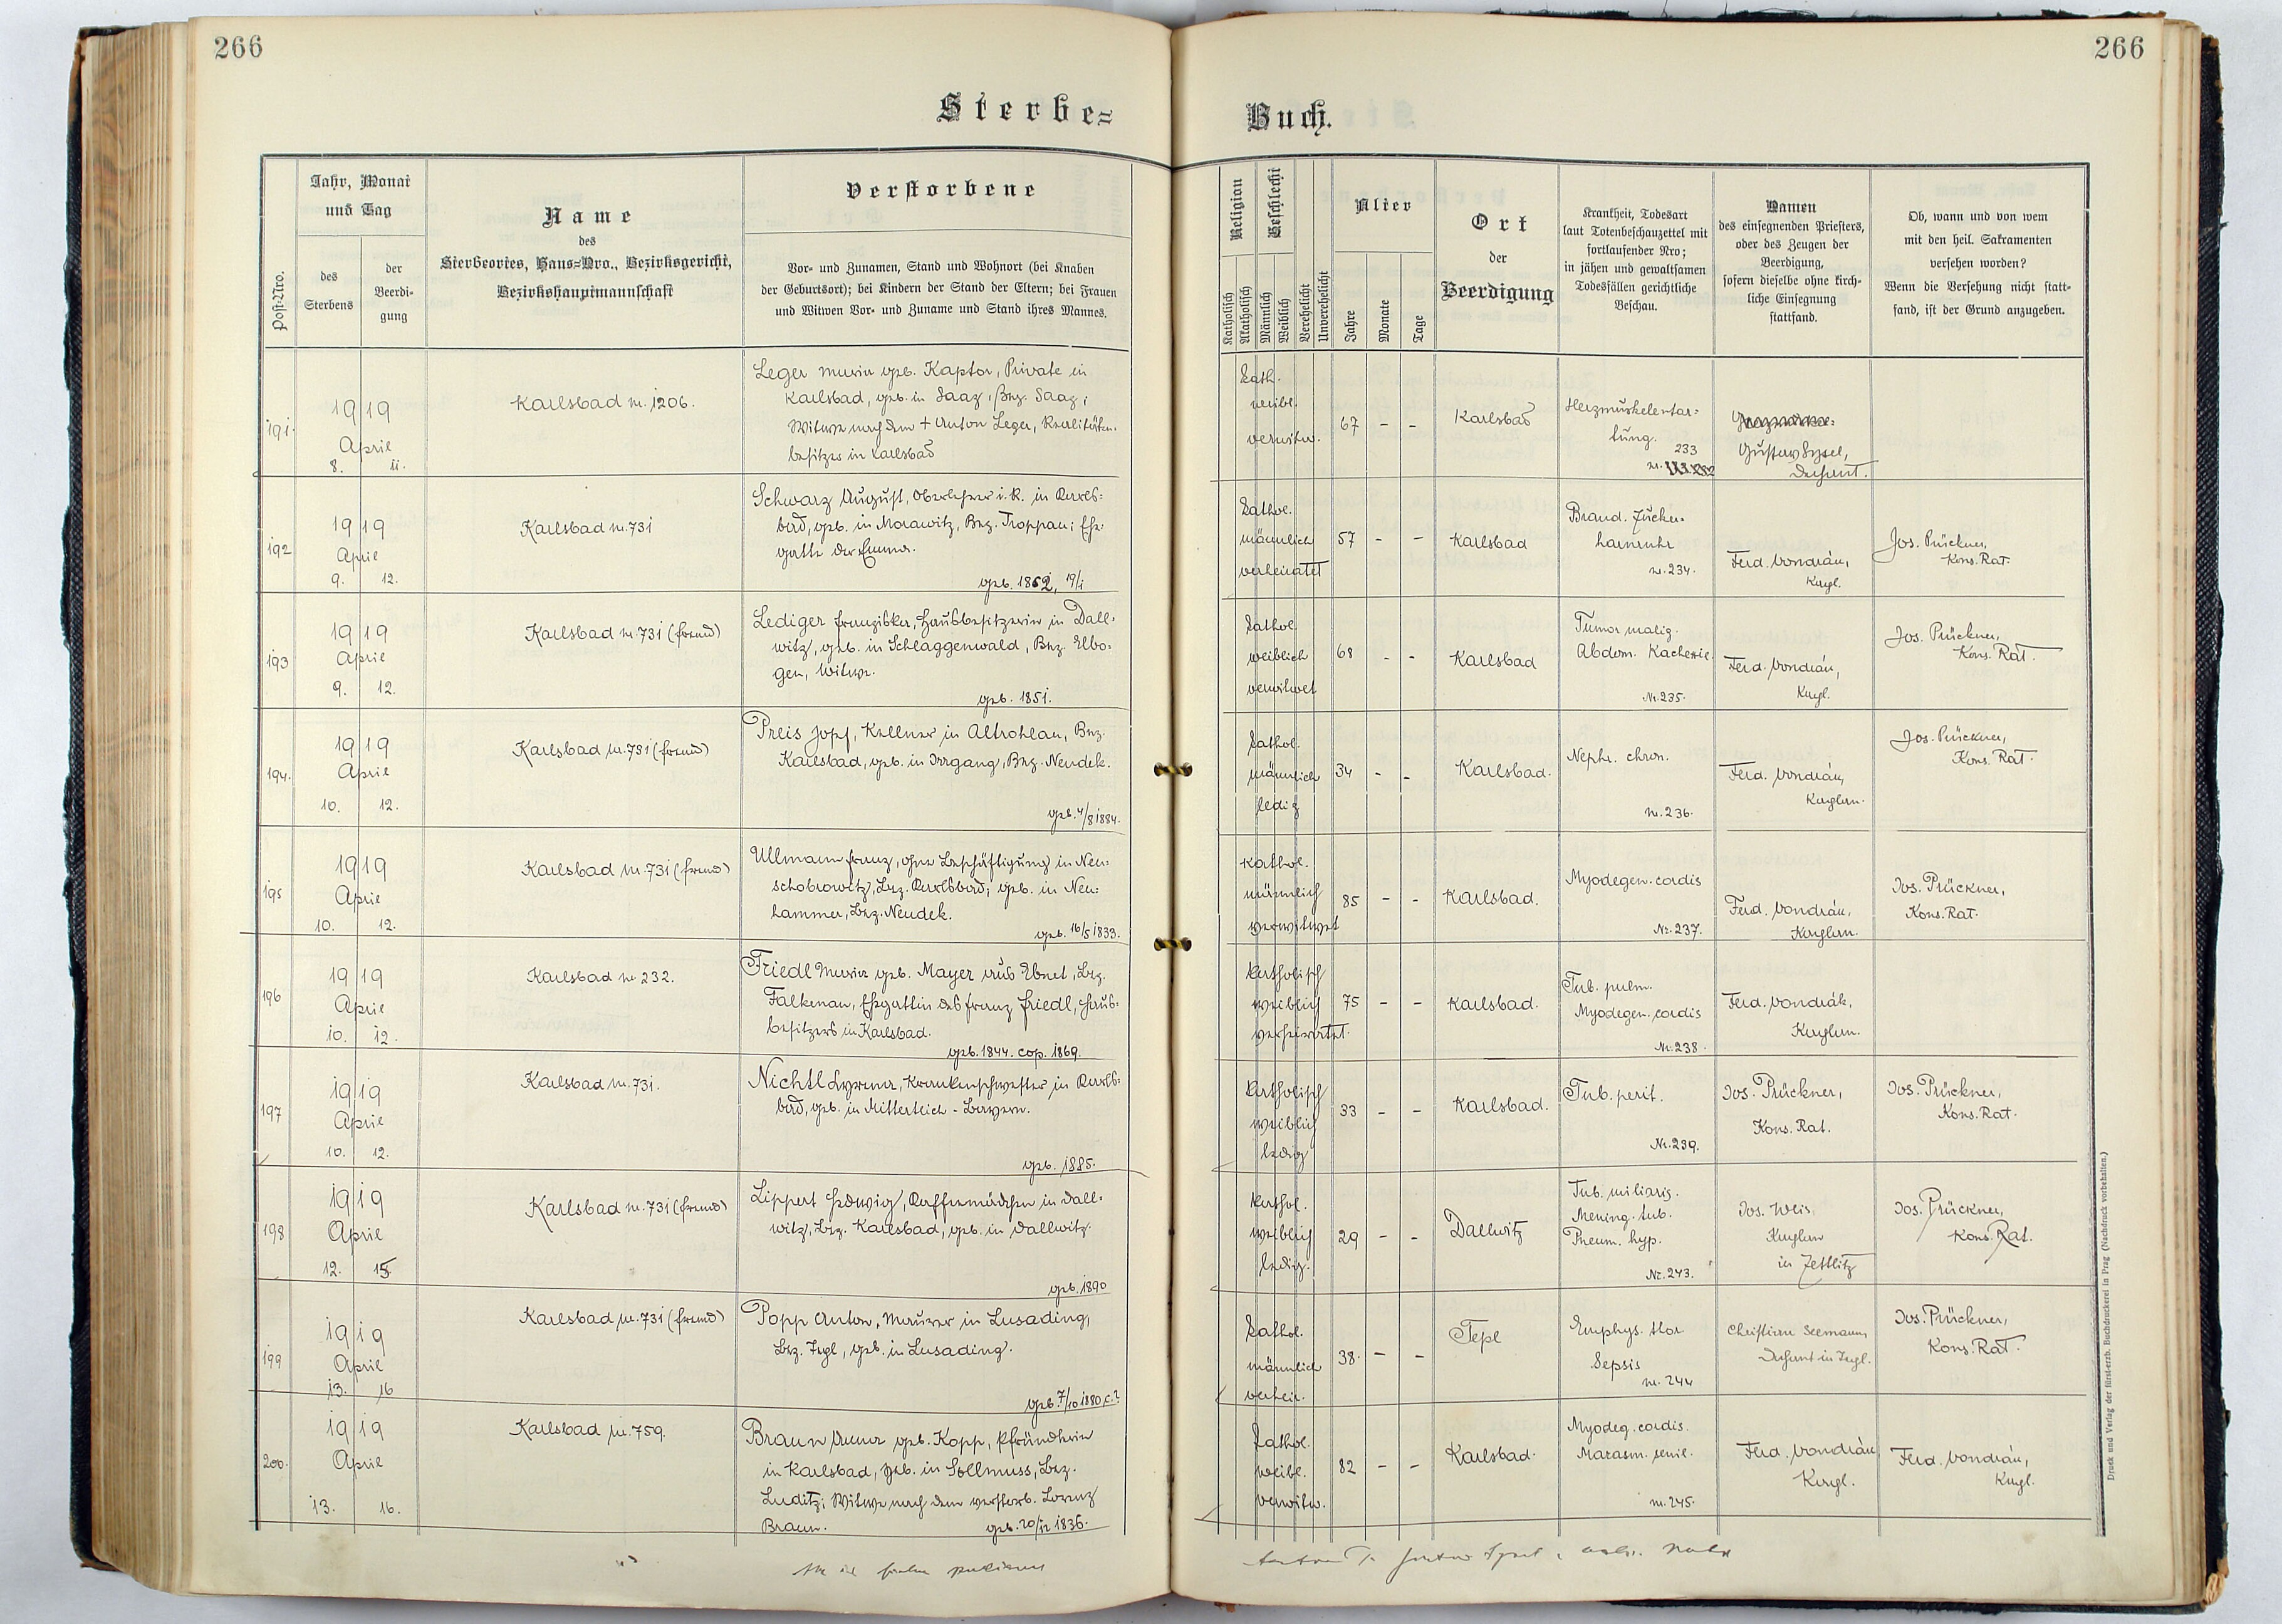 266
266
Sterbe=
Buch.
Post-Nro.
Jahr, Monat
und Tag
des
Sterbens
der
Beerdi-
gung
Name
des
Sterbeortes, Haus=Nro., Bezirksgericht,
Bezirkshauptmannschaft
Verstorbene
Vor- und Zunamen, Stand und Wohnort (bei Knaben
der Geburtsort); bei Kindern der Stand der Eltern; bei Frauen
und Witwen Vor- und Zuname und Stand ihres Mannes.
Religion
Katholisch
Akatholisch
Geschlecht
Männlich
Weiblich
Verehelicht
Unverehelicht
Alter
Jahre
Monate
Tage
Ort
der
Beerdigung
Krankheit, Todesart
laut Totenbeschauzettel mit
fortlaufender Nro;
in jähen und gewaltsamen
Todesfällen gerichtliche
Beschau.
Namen
des einsegnenden Priesters,
oder des Zeugen der
Beerdigung,
sofern dieselbe ohne kirch-
liche Einsegnung
stattfand.
Ob, wann und von wem
mit den heil. Sakramenten
versehen worden?
Wenn die Versehung nicht statt=
fand, ist der Grund anzugeben.
191.
1919
April
8. 11.
Karlsbad nr. 1206.
Leger Maria geb. Kaptor, Private in
Karlsbad, geb. in Saaz, Bez. Saaz;
Witwe nach dem + Anton Leger, Realitäten-
besitzer in Karlsbad
kath.
weibl.
verwitw.
67 - -
Karlsbad
Herzmuskelentar=
tung.
233
nr.
Gustav
Dechant.
192
1919
April
9. 12.
Karlsbad nr. 731
Schwarz August, Oberlehrer i. R. in Karls=
bad, geb. in Morawitz, Bez. Troppau; Ehe-
gatte der Emma.
geb. 1862, 19/1
kathol.
männlich
verheiratet
57 - -
Karlsbad
Brand. Zucker-
harnruhr
nr. 234.
Ferd. Vondrák,
Kapl.
Jos. Prückner,
Kons. Rat.
193
1919
April
9. 12.
Karlsbad nr. 731 (fremd)
Lediger Franziska, Hausbesitzerin in Dall-
witz, geb. in Schlaggenwald, Bez. Elbo-
gen, Witwe.
geb. 1851.
kathol.
weiblich
verwitwet
68 - -
Karlsbad
Tumor malig.
Abdom. Kachexie.
Nr. 235.
Ferd. Vondrák,
Kapl.
Jos. Prückner,
Kons. Rat.
194.
1919
April
10. 12.
Karlsbad nr. 731 (fremd)
Preis Josef, Kellner in Altrohlau, Bez.
Karlsbad, geb. in Irrgang, Bez. Neudek.
geb. 4/8 1884.
kathol.
männlich
ledig
34 - -
Karlsbad.
Nephr. chron.
nr. 236.
Ferd. Vondrák,
Kaplan.
Jos. Prückner,
Kons. Rat.
195
1919
April
10. 12.
Karlsbad nr. 731 (fremd)
Ullmann Franz, ohne Beschäftigung in Neu=
schobrowitz, Bez. Karlsbad; geb. in Neu=
hammer, Bez. Neudek.
geb. 16/5 1833.
kathol.
männlich
verwitwet
85 - -
Karlsbad.
Myodegen. cordis
Nr. 237.
Ferd. Vondrák,
Kaplan.
Jos. Prückner,
Kons. Rat.
196
1919
April
10. 12.
Karlsbad nr. 232.
Friedl Maria geb. Mayer aus Ebnet, Bez.
Falkenau, Ehegattin des Franz Friedl, Haus-
besitzers in Karlsbad.
geb. 1844. cop. 1869.
katholisch
weiblich
verheiratet.
75 - -
Karlsbad.
Tub. pulm.
Myodegen. cordis
Nr. 238.
Ferd. Vondrák,
Kaplan.
197
1919
April
10. 12.
Karlsbad nr. 731.
Nichtl Lyrena, Krankenschwester in Karls=
bad, geb. in Mitterteich - Bayern.
geb. 1885.
katholisch
weiblich
ledig
33 - -
Karlsbad.
Tub. perit.
Nr. 239.
Jos. Prückner,
Kons. Rat.
Jos. Prückner,
Kons. Rat.
198
1919
April
12. 15.
Karlsbad nr. 731 (fremd)
Lippert Hedwig, Kaffeemädchen in Dall=
witz, Bez. Karlsbad, geb. in Dallwitz.
geb. 1890
kathol.
weiblich
ledig.
29 - -
Dallwitz
Tub. miliaris.
Mening. tub.
Pneum. hyp.
Nr. 243.
Jos. Weis,
Kaplan
in Zettlitz
Jos. Prückner,
Kons. Rat.
199
1919
April
13. 16
Karlsbad nr. 731 (fremd)
Popp Anton, Maurer in Lusading,
Bez. Tepl, geb. in Lusading.
geb. 7/10 1880 c.?
kathol.
männlich
verheir.
38. - -
Tepl
Emphys. thor
Sepsis
nr. 244
Christian Seemann,
Dechant in Tepl.
Jos. Prückner,
Kons. Rat.
200.
1919
April
13. 16.
Karlsbad nr. 759.
Braun Anna geb. Kopp, Pfründnerin
in Karlsbad, geb. in Sollmuss, Bez.
Luditz; Witwe nach dem verstorb. Lorenz
Braun. geb. 20/12 1836.
kathol.
weibl.
verwitw.
82 - -
Karlsbad.
Myodeg. cordis.
Marasm. senil.
nr. 245.
Ferd. Vondrák,
Kapl.
Ferd. Vondrák,
Kapl.
Druck und Verlag der fürst-erzb. Buchdruckerei in Prag (Nachdruck vorbehalten.)